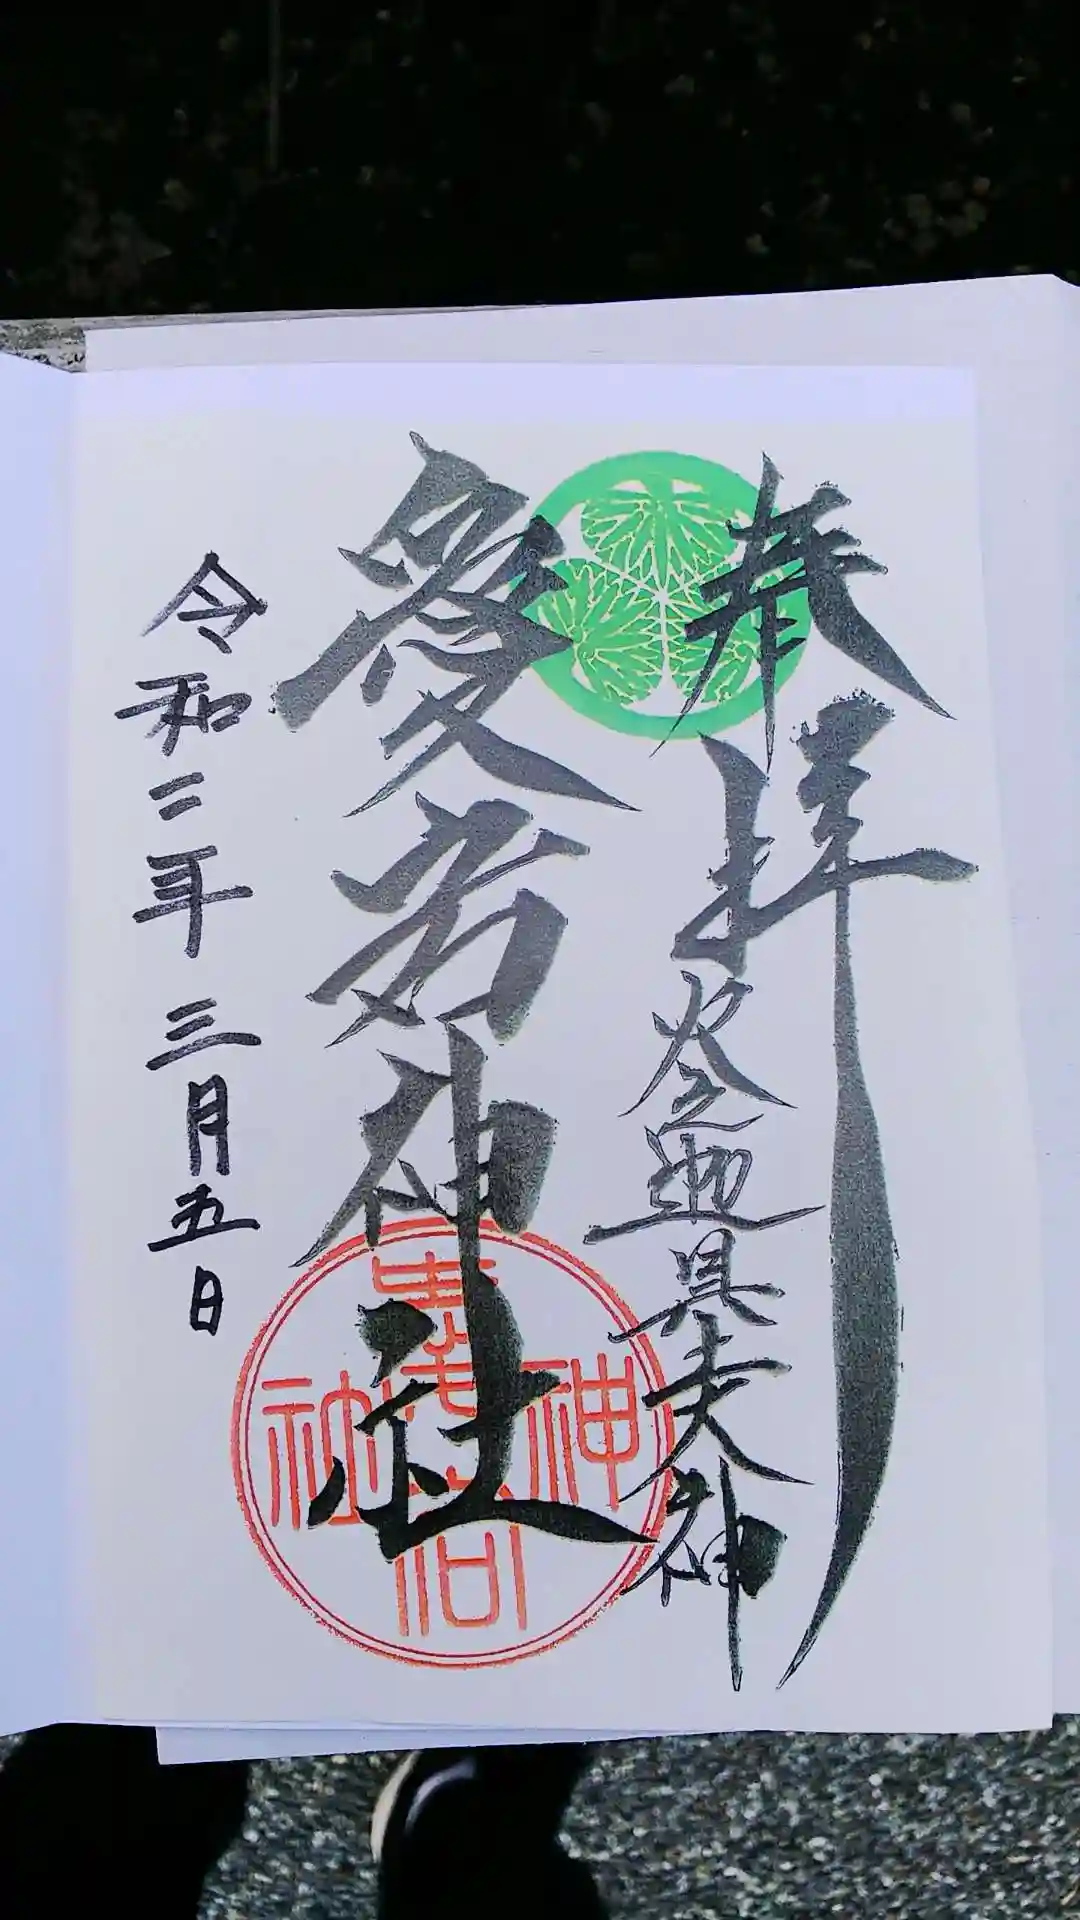 奉拝
火之迦具土大神
愛宕神社
令和二年三月五日